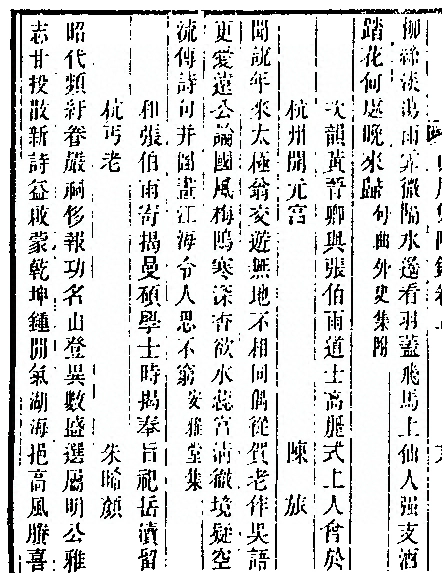 柳絲淡蕩雨霏微隔水遙看羽蓋飛馬上仙人强支酒
踏花何處晚來歸 句曲外史集附
次韻黃晉卿與張伯雨道士高麗式上人會於
杭州開元宮 陳旅
聞說年來太極翁交遊無地不相同偶從賀老作吳語
更愛遠公論國風梅塢寒深香欲水蕊宮淸徹境疑空
流傳詩句并圖畫江海令人思不窮 安雅堂集
和張伯雨寄揭曼碩學士時揭奉旨祀岳瀆留
杭丐老 朱晞顏
昭代頻紆眷嚴祠侈報功名山登異數盛選屬明公雅
志甘投散新詩益啟蒙乾坤鍾閒氣湖海挹高風賸喜